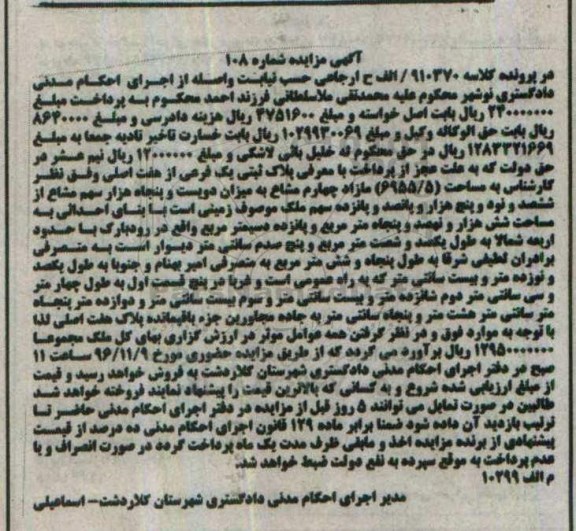 آگهی مزایده شماره ۱۰۸
در پرونده کلاسه ۹۱۰۳۷۰/ الف ح ارجاعی حسب نیابت واصله از اجرای احکام مدنی
دادگستری نوشهر محکوم علیه محمدتقی ملاسلطانی فرزند احمد محکوم به پرداخت مبلغ
۲۴۰۰۰۰۰۰ ریال بابت اصل خواسته و مبلغ ۴۷۵۱۶۰۰ ریال هزینه دادرسی و مبلغ ۸۶۴۰۰۰۰
ریال بابت حق الوکاله وکیل و مبلغ ۱۰۲۹۹۳۰۰۶۹ ریال بابت خسارت تاخیر تادیه جمعا به مبلغ
۱۲۸۳۳۲۱۶۶۹ ریال در حق محکوم له خلیل بائی لاشکی و مبلغ ۱۲۰۰۰۰۰۰ ریال نیم عشر در
حق دولت که به علت عجز از پرداخت با معرفی پلاک ثبتی یک فرعی از هفت اصلی وفق نظر
کارشناس به مساحت (۶۹۵۵/۵) مازاد چهارم مشاع به میزان دویست و پنجاه هزار سهم مشاع از
ششصد و نود و پنج هزار و پانصد و پانزده سهم ملک موصوف زمینی است با بنای احداثی به
مساحت شش هزار و نهصد و پنجاه متر مربع و پانزده دسیمتر مربع واقع در رودبارک با حدود
اربعه شمالا به طول یکصد و شصت متر مربع و پنج صدم سانتی متر دیوار است به متصرفی
برادران لطیفی شرقا به طول پنجاه و شش متر مربع به متصرفی امیر بهنام و جنوبا به طول یکصد
و نوزده متر و بیست سانتی متر که به راه عمومی است و غربا در پنج قسمت اول به طول چهار متر
و سی سانتی متر دوم شانزده متر و بیست سانتی متر و سوم بیست سانتی متر و دوازده متر پنجاه
متر سانتی متر هشت متر و پنجاه سانتی متر به جاده مجاورین جزء باقیمانده پلاک هفت اصلی لذا
با توجه به موارد فوق و در نظر گرفتن همه عوامل موثر در ارزش گزاری بهای کل ملک مجموعا
۱۲۹۵۰۰۰۰۰۰ ریال برآورد می گردد که از طریق مزایده حضوری مورخ ۹۶/۱۱/۹ ساعت ۱۱
صبح در دفتر اجرای احکام مدنی دادگستری شهرستان کلاردشت به فروش خواهد رسید و قیمت
از مبلغ ارزیابی شده شروع و به کسانی که بالاترین قیمت را پیشنهاد نمایند فروخته خواهد شد
طالبین در صورت تمایل می توانند ۵ روز قبل از مزایده در دفتر اجرای احکام مدنی حاضر تا
ترتیب بازدید آن داده شود ضمنا برابر ماده ۱۲۹ قانون اجرای احکام مدنی ده درصد از قیمت
پیشنهادی از برنده مزایده اخذ و مابقی ظرف مدت یک ماه پرداخت گردد در صورت انصراف و یا
عدم پرداخت به موقع سپرده به نفع دولت ضبط خواهد شد.
م الف ۱۰۲۹۹
مدیر اجرای احکام مدنی دادگستری شهرستان کلاردشت- اسماعیلی